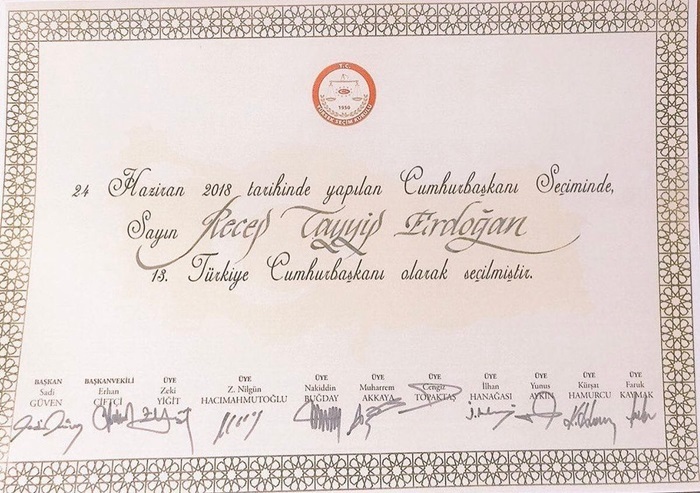 T.C.
1950
YÜKSEK SEÇİM KURULU
24 Haziran 2018 tarihinde yapılan Cumhurbaşkanı Seçiminde,
Sayın Recep Tayyip Erdoğan
13. Türkiye Cumhurbaşkanı olarak seçilmiştir.
BAŞKAN BAŞKANVEKİLİ ÜYE ÜYE ÜYE ÜYE ÜYE ÜYE ÜYE ÜYE ÜYE
Sadi Erhan Zeki Z. Nilgün Nakiddin Muharrem Cengiz İlhan Yunus Kürşat Faruk
GÜVEN ÇİFTÇİ YİĞİT HACIMAHMUTOĞLU BUĞDAY AKKAYA TOPAKTAŞ HANAĞASI AYKIN HAMURCU KAYMAK